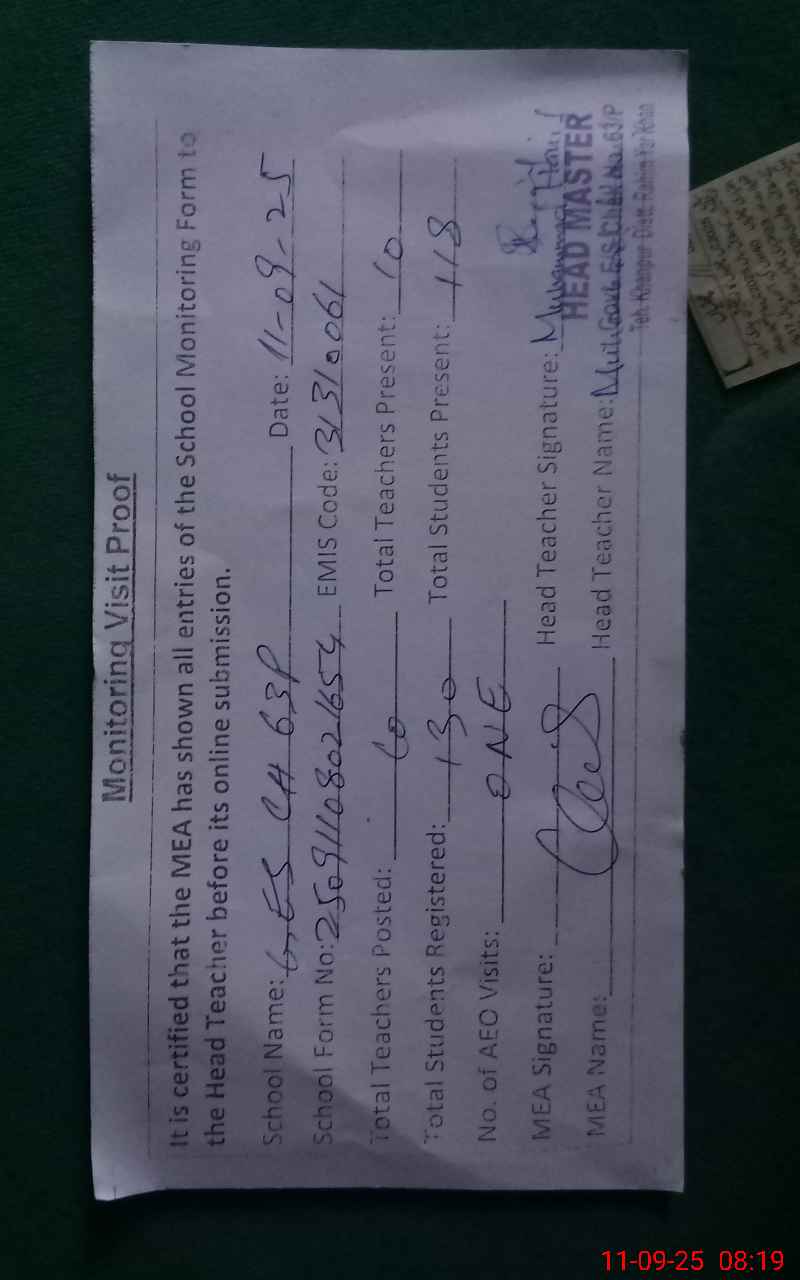 Monitoring Visit Proof
It is certified that the MEA has shown all entries of the School Monitoring Form to
the Head Teacher before its online submission.
School Name: G,ES CH 63P Date: 11-09-25
School Form No: 25091108021654 EMIS Code: 31310061
Total Teachers Posted: 10 Total Teachers Present: 10
Total Students Registered: 130 Total Students Present: 118
No. of AEO Visits: ONE
MEA Signature: Head Teacher Signature: Muhammad
HEAD MASTER
MEA Name: Head Teacher Name:
Govt: E/S Chak No. 63/P
Teh: Khanpur Distt: Rahim Yar Khan
11-09-25 08:19